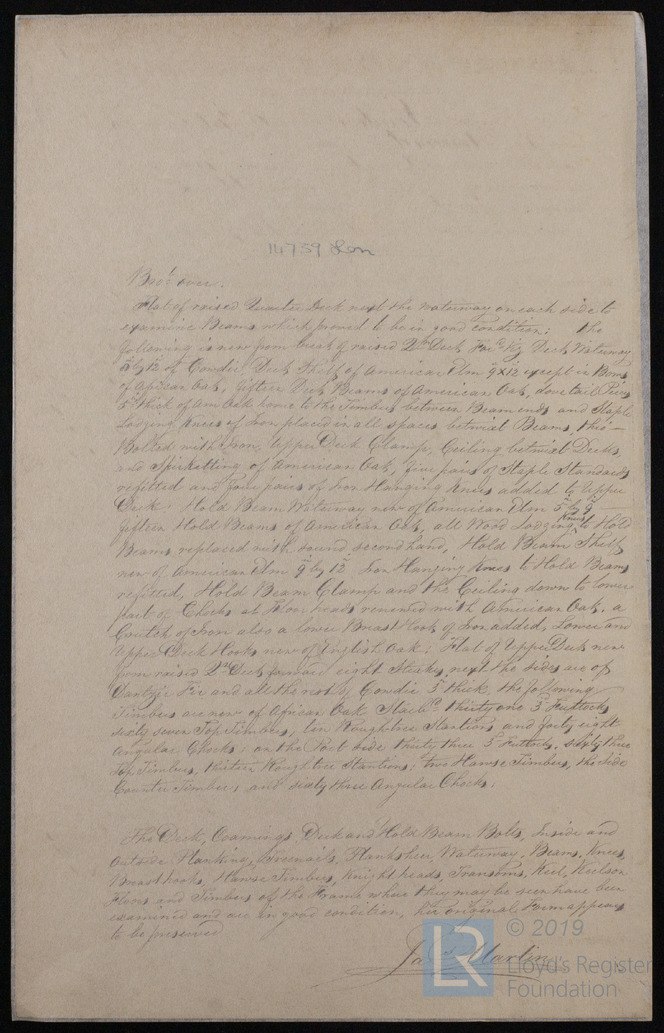 14739 Lon
Bro.t over.
Flat of raised Quarter Deck next the waterway on each side to
examine Beams which proved to be in good condition: the
following is new from break of raised Qr Deck For.d Viz Deck Waterway
by 12 of Cowdie, Deck Shelf of American Elm 9 x 12 except in Bows
of African Oak, fifteen Deck Beams of American Oak, dovetail Pieces
5 thick of Am Oak home to the Timbers between Beam ends and Staple
Lodging Knees of Iron placed in all spaces betwixt Beams, thro'
Bolted with Iron, Upper Deck Clamp, Ceiling betwixt Decks,
and Spirketting of American Oak, five pairs of Staple Standards
refitted and four pairs of Iron Hanging Knees added to Upper
Deck: Hold Beam Waterway new of American Elm 5 by 9
fifteen Hold Beams of American Oak, all Wood Lodging Knees to Hold
Beams replaced with sound secondhand, Hold Beam Shelf
new of American Elm 9 by 12 Iron Hanging Knees to Hold Beams
refitted, Hold Beam Clamp and the Ceiling down to lower
part of Chocks at Floor heads renewed with American Oak, a
Crutch of Iron also a lower Breast Hook of Iron added, Lower and
Upper Deck Hooks new of English Oak: Flat of Upper Deck new
from raised Qr Deck forward eight Strakes next the sides are of
Dantzic Fir and all the rest of Cowdie 3 thick. the following
Timbers are new of African Oak Starb.d thirty one 3 Futtocks
sixty seven Top Timbers, ten Roughtree Stantions and forty eight
Angular Chocks: on the Port side thirty three 3 Futtocks, sixty three
Top Timbers, thirteen Roughtree Stantions, two Hawse Timbers, the Side
Counter Timber, and sixty three Angular Chocks.
The Deck, Coamings, Deck and Hold Beam Bolts, Inside and
Outside Planking, Treenails, Planksheer, Waterway, Beams, Knees,
Breasthooks, Hawse Timbers, Knight heads, Transoms, Keel, Keelson
Floors and Timbers of the Frame where they may be seen have been
examined and are in good condition, her original Form appears
to be preserved
Ja.s Martin
© 2019
LR Lloyd's Register
Foundation